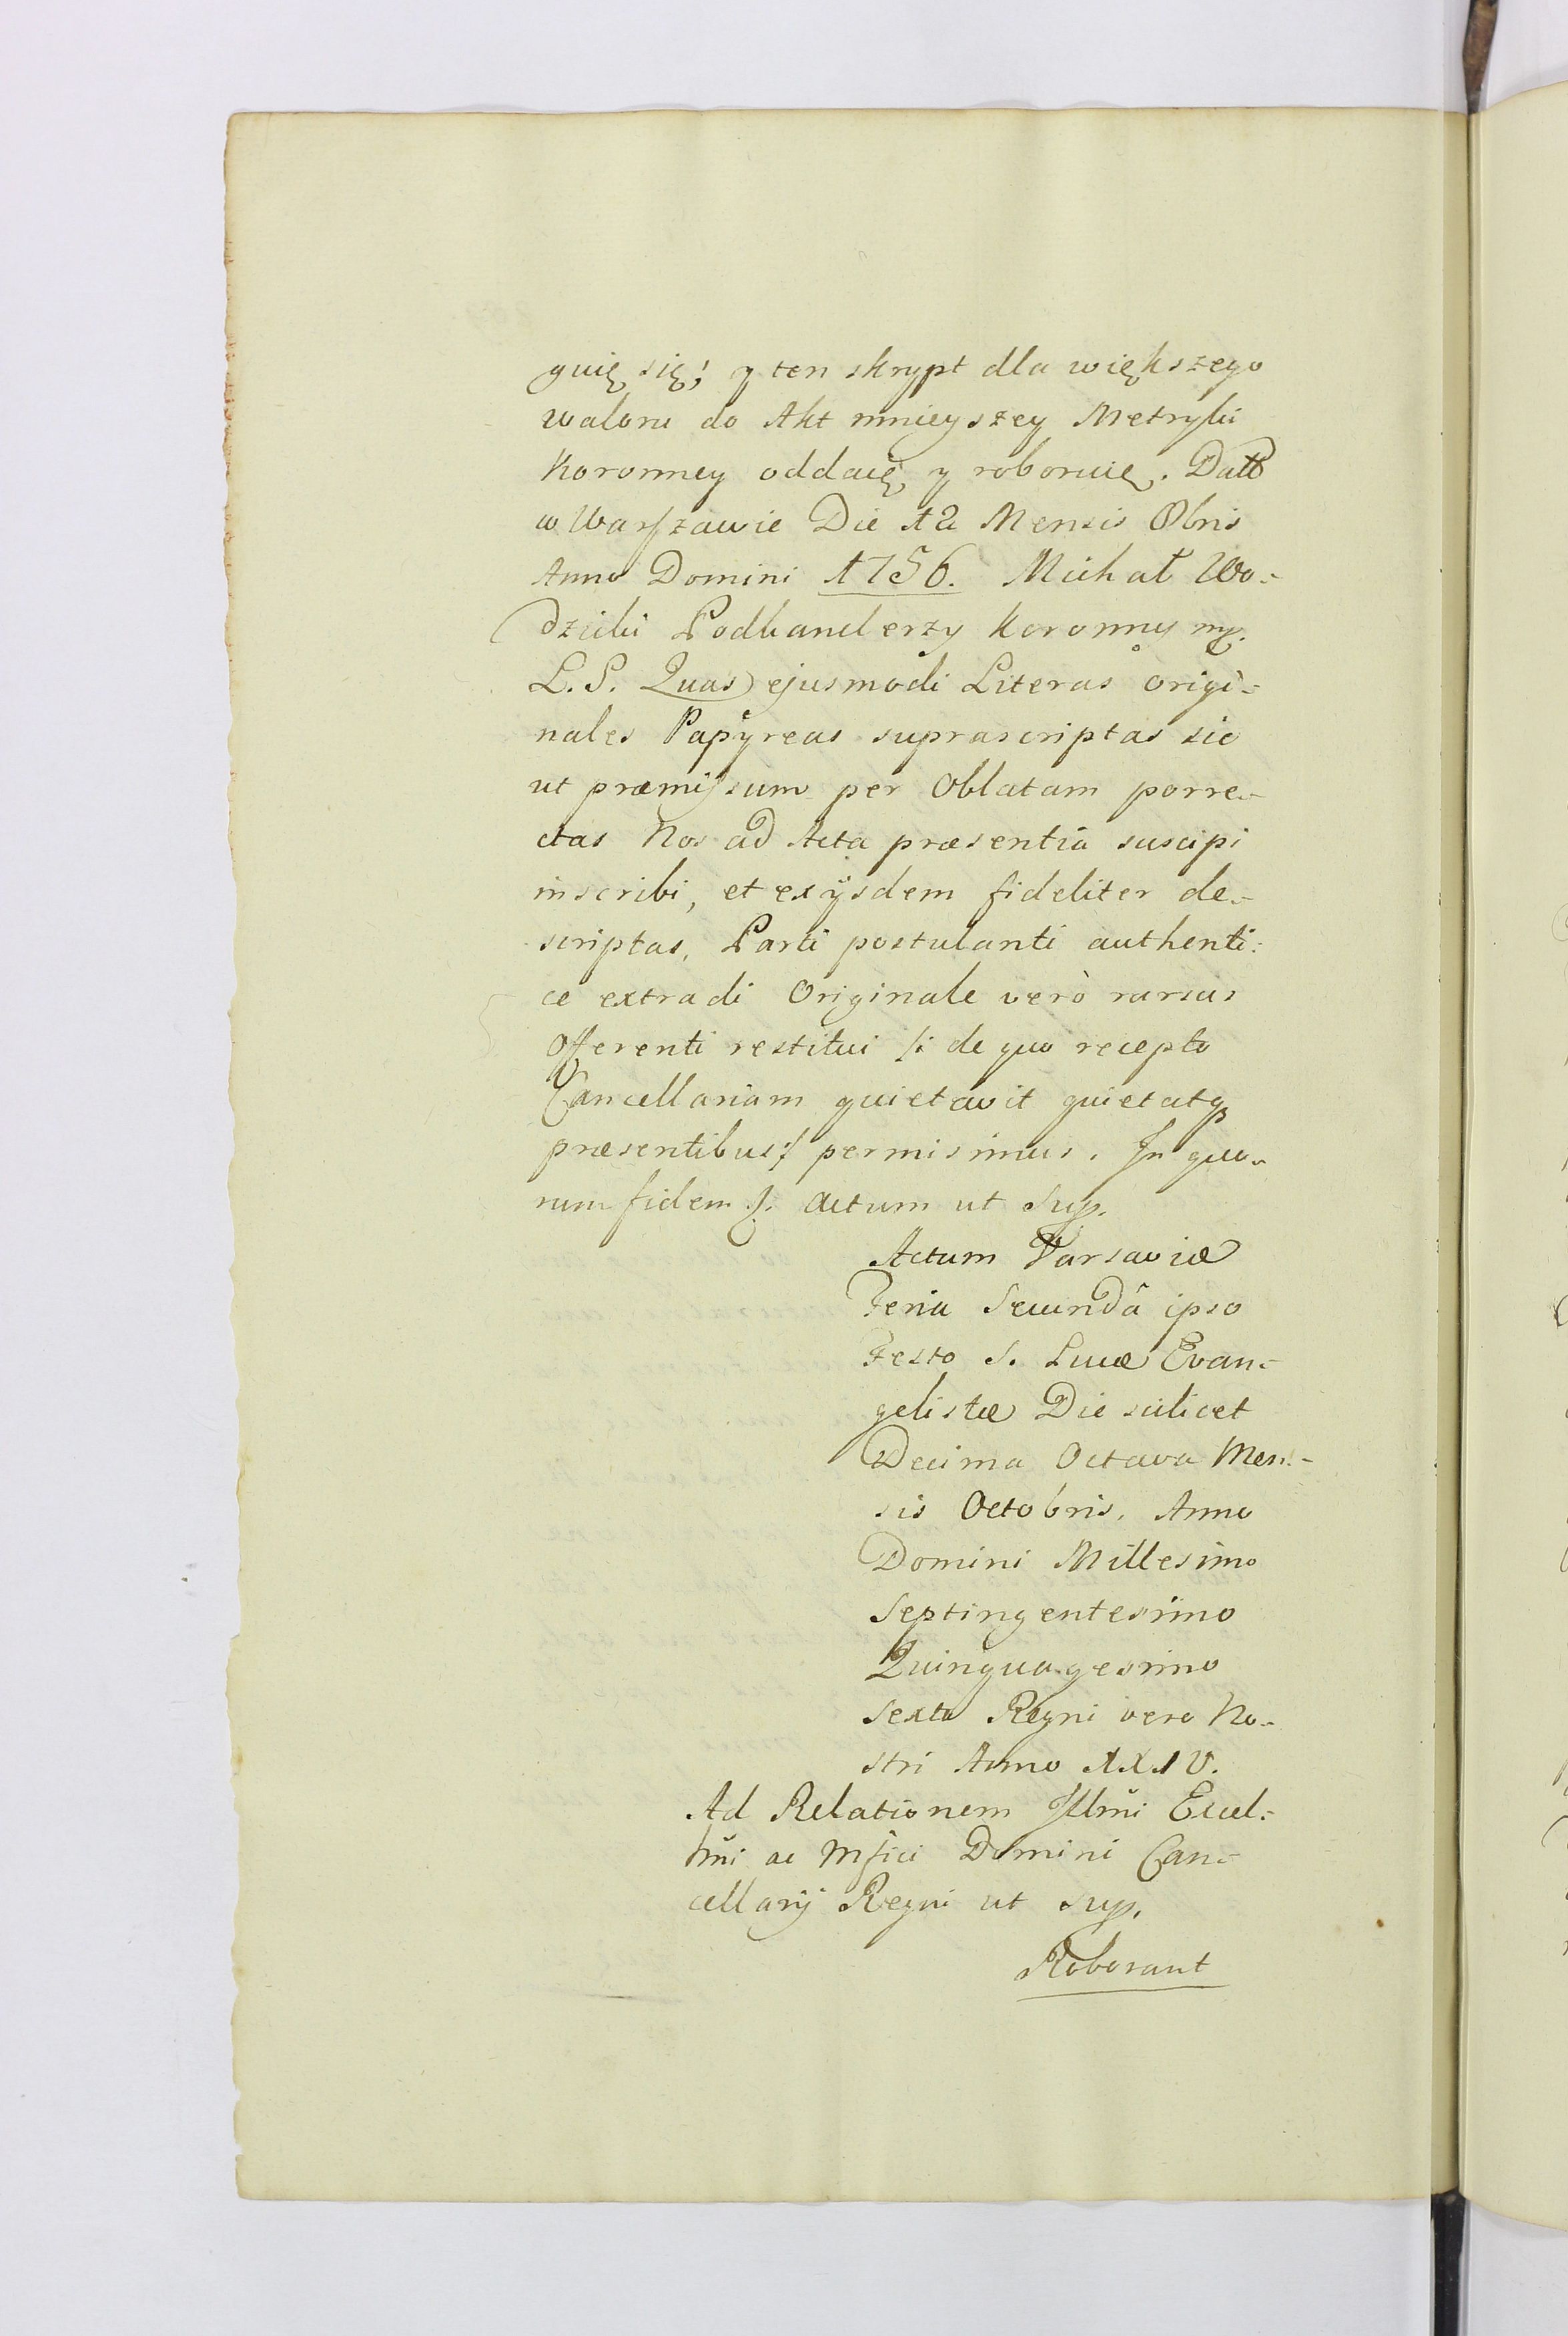 guię się; y ten skrypt dla większego
waloru do Akt mnieyszey Metryki
Koronney oddaię y roboruię. Datt
w Warszawie Die 12 Mensis 8bris
Anno Domini 1756. Michał Wo-
dzicki Podkanclerzy Koronny mp.
L. S. Quas ejusmodi Literas origi-
nales Papyreas suprascriptas sic
ut præmissum per Oblatam porre-
ctas Nos ad Acta præsentia suscipi
inscribi, et ex ijsdem fideliter de-
scriptas, Parti postulanti authenti-
ce extradi Originale verò rursus
Offerenti restitui /: de quo recepto
Cancellariam quietavit quietatq
præsentibus :/ permisimus. In quo-
rum fidem &. Actum ut Sup.
Actum Varsaviæ
Feria Secundâ ipso
Festo S. Lucæ Evan-
gelistæ Die scilicet
Decima Octava Men-
sis Octobris, Anno
Domini Millesimo
Septingentesimo
Quinquagesimo
Sexto Regni vero No-
stri Anno XXIV.
Ad Relationem Illmi Excel-
lmi ac Mfici Domini Can-
cellarij Regni ut sup.
Roborant